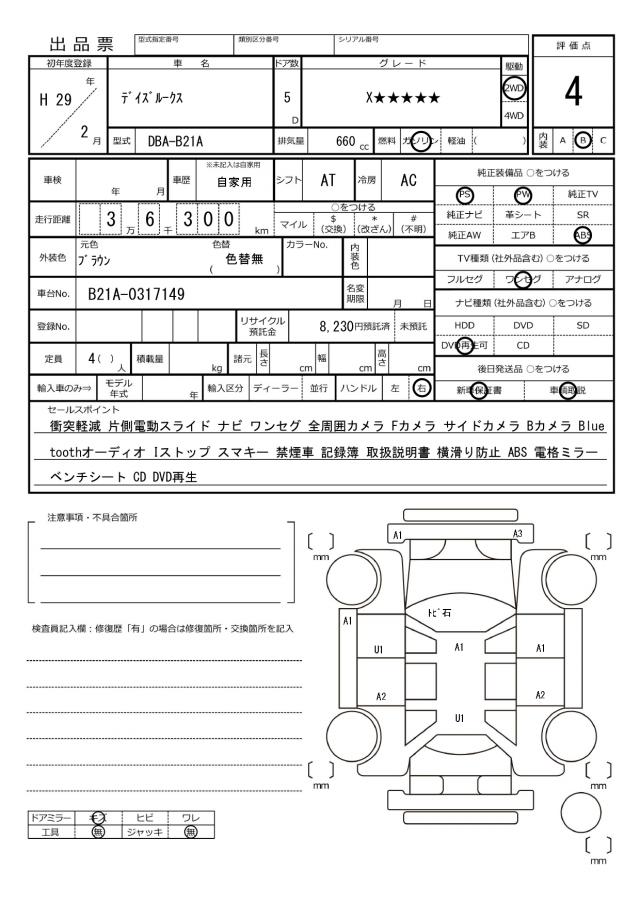 出品票
型式指定番号 類別区分番号 シリアル番号
評価点
4
初年度登録 車 名 ドア数 グレード 駆動
H 29 年 2 月
ﾃﾞｲｽﾞﾙｰｸｽ
5 D
X★★★★★
2WD
4WD
型式 DBA-B21A 排気量 660 cc 燃料 ガソリン 軽油 ( )
内装 A B C
車検 年 月 車歴 ※未記入は自家用 自家用 シフト AT 冷房 AC
走行距離 3 万 6 千 3 0 0 km
○をつける
マイル $ (交換) * (改ざん) # (不明)
外装色 元色 ﾌﾞﾗｳﾝ 色替 ( 色替無 ) カラーNo. 内装色
車台No. B21A-0317149 名変期限 月 日
登録No. リサイクル預託金 8,230円預託済 未預託
定員 4( )人 積載量 kg 諸元 長さ cm 幅 cm 高さ cm
輸入車のみ⇒ モデル年式 年 輸入区分 ディーラー 並行 ハンドル 左 右
純正装備品 ○をつける
PS PW 純正TV
純正ナビ 革シート SR
純正AW エアB ABS
TV種類(社外品含む)○をつける
フルセグ ワンセグ アナログ
ナビ種類(社外品含む)○をつける
HDD DVD SD
DVD再生可 CD
後日発送品 ○をつける
新車保証書 車輌取説
セールスポイント
衝突軽減 片側電動スライド ナビ ワンセグ 全周囲カメラ Fカメラ サイドカメラ Bカメラ Blue
toothオーディオ Iストップ スマキー 禁煙車 記録簿 取扱説明書 横滑り防止 ABS 電格ミラー
ベンチシート CD DVD再生
注意事項・不具合箇所
検査員記入欄：修復歴「有」の場合は修復箇所・交換箇所を記入
ドアミラー キズ ヒビ ワレ
工具 無 ジャッキ 無
A1 A3
[ ] mm [ ] mm
ﾄﾋﾞ石
A1
U1 A1 A1
A2 A2
U1
[ ] mm [ ] mm
[ ] mm